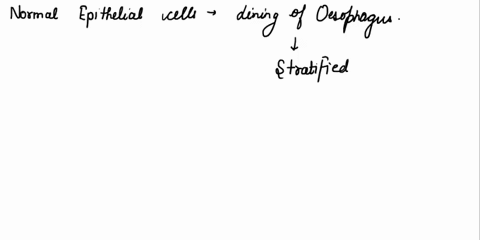 Normal Epithelial cells → dining of Oesophagus.
↓
Stratified